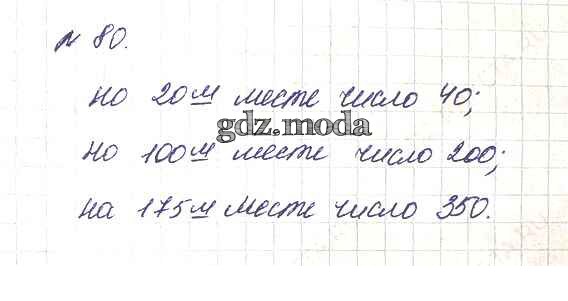 № 80.
на 20м месте число 40;
gdz.moda
на 100м месте число 200;
на 175м месте число 350.